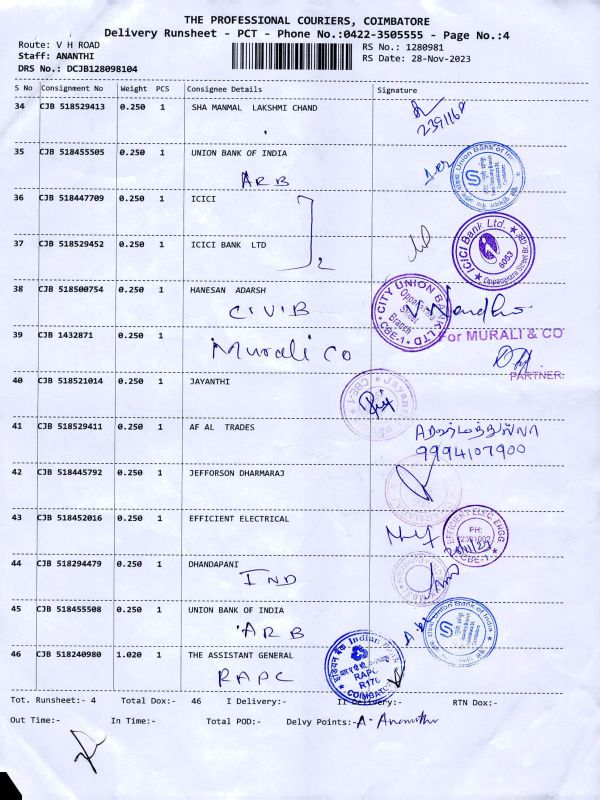 THE PROFESSIONAL COURIERS, COIMBATORE
Delivery Runsheet - PCT - Phone No.:0422-3505555 - Page No.:4
Route: V H ROAD
RS No.: 1280981
Staff: ANANTHI
RS Date: 28-Nov-2023
DRS No.: DCJB128098104
S No Consignment No Weight PCS Consignee Details Signature
34 CJB 518529413 0.250 1 SHA MANMAL LAKSHMI CHAND
35 CJB 518455505 0.250 1 UNION BANK OF INDIA
ARB
Union Bank of India
36 CJB 518447709 0.250 1 ICICI
37 CJB 518529452 0.250 1 ICICI BANK LTD
2
ICICI Bank Ltd.
6053
38 CJB 518500754 0.250 1 HANESAN ADARSH
CIVIB
CITY UNION BANK LTD
Street
Branch
CBE-1
39 CJB 1432871 0.250 1
Murali Co
For MURALI & CO
PARTNER.
40 CJB 518521014 0.250 1 JAYANTHI
CBE-1
41 CJB 518529411 0.250 1 AF AL TRADES
9994107900
42 CJB 518445792 0.250 1 JEFFORSON DHARMARAJ
43 CJB 518452016 0.250 1 EFFICIENT ELECTRICAL
EFFICIENT ELEC. ENGG
PH:
CBE-1
44 CJB 518294479 0.250 1 DHANDAPANI
IND
45 CJB 518455508 0.250 1 UNION BANK OF INDIA
ARB
Union Bank of India
46 CJB 518240980 1.020 1 THE ASSISTANT GENERAL
RAPC
इंडियन बैंक Indian Bank
RAPC
R176
Tot. Runsheet:- 4 Total Dox:- 46 I Delivery:- II Delivery:- RTN Dox:-
Out Time:- In Time:- Total POD:- Delvy Points:-